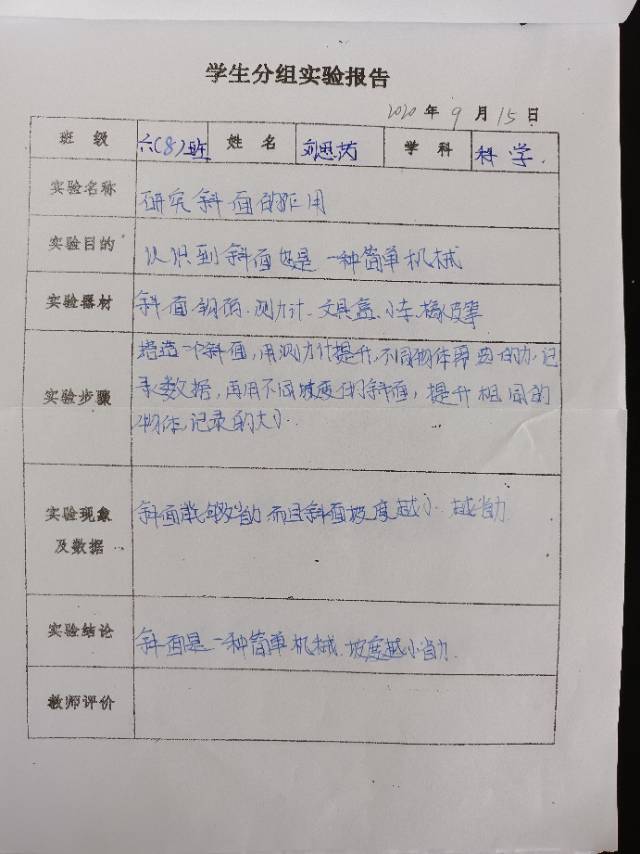 学生分组实验报告
2020 年 9 月 15 日
班 级 六(8)班 姓 名 刘思芮 学 科 科学.
实验名称 研究斜面的作用
实验目的 认识到斜面也是一种简单机械
实验器材 斜面.钩码.测力计.文具盒.小车.橡皮等
搭造一个斜面,用测力计提升,不同物体需要的力,记
实验步骤 录数据,再用不同坡度的斜面,提升相同的
物体,记录的大小.
实验现象 斜面能够省力 而且斜面坡度越小.越省力.
及数据
实验结论 斜面是一种简单机械.坡度越小省力.
教师评价